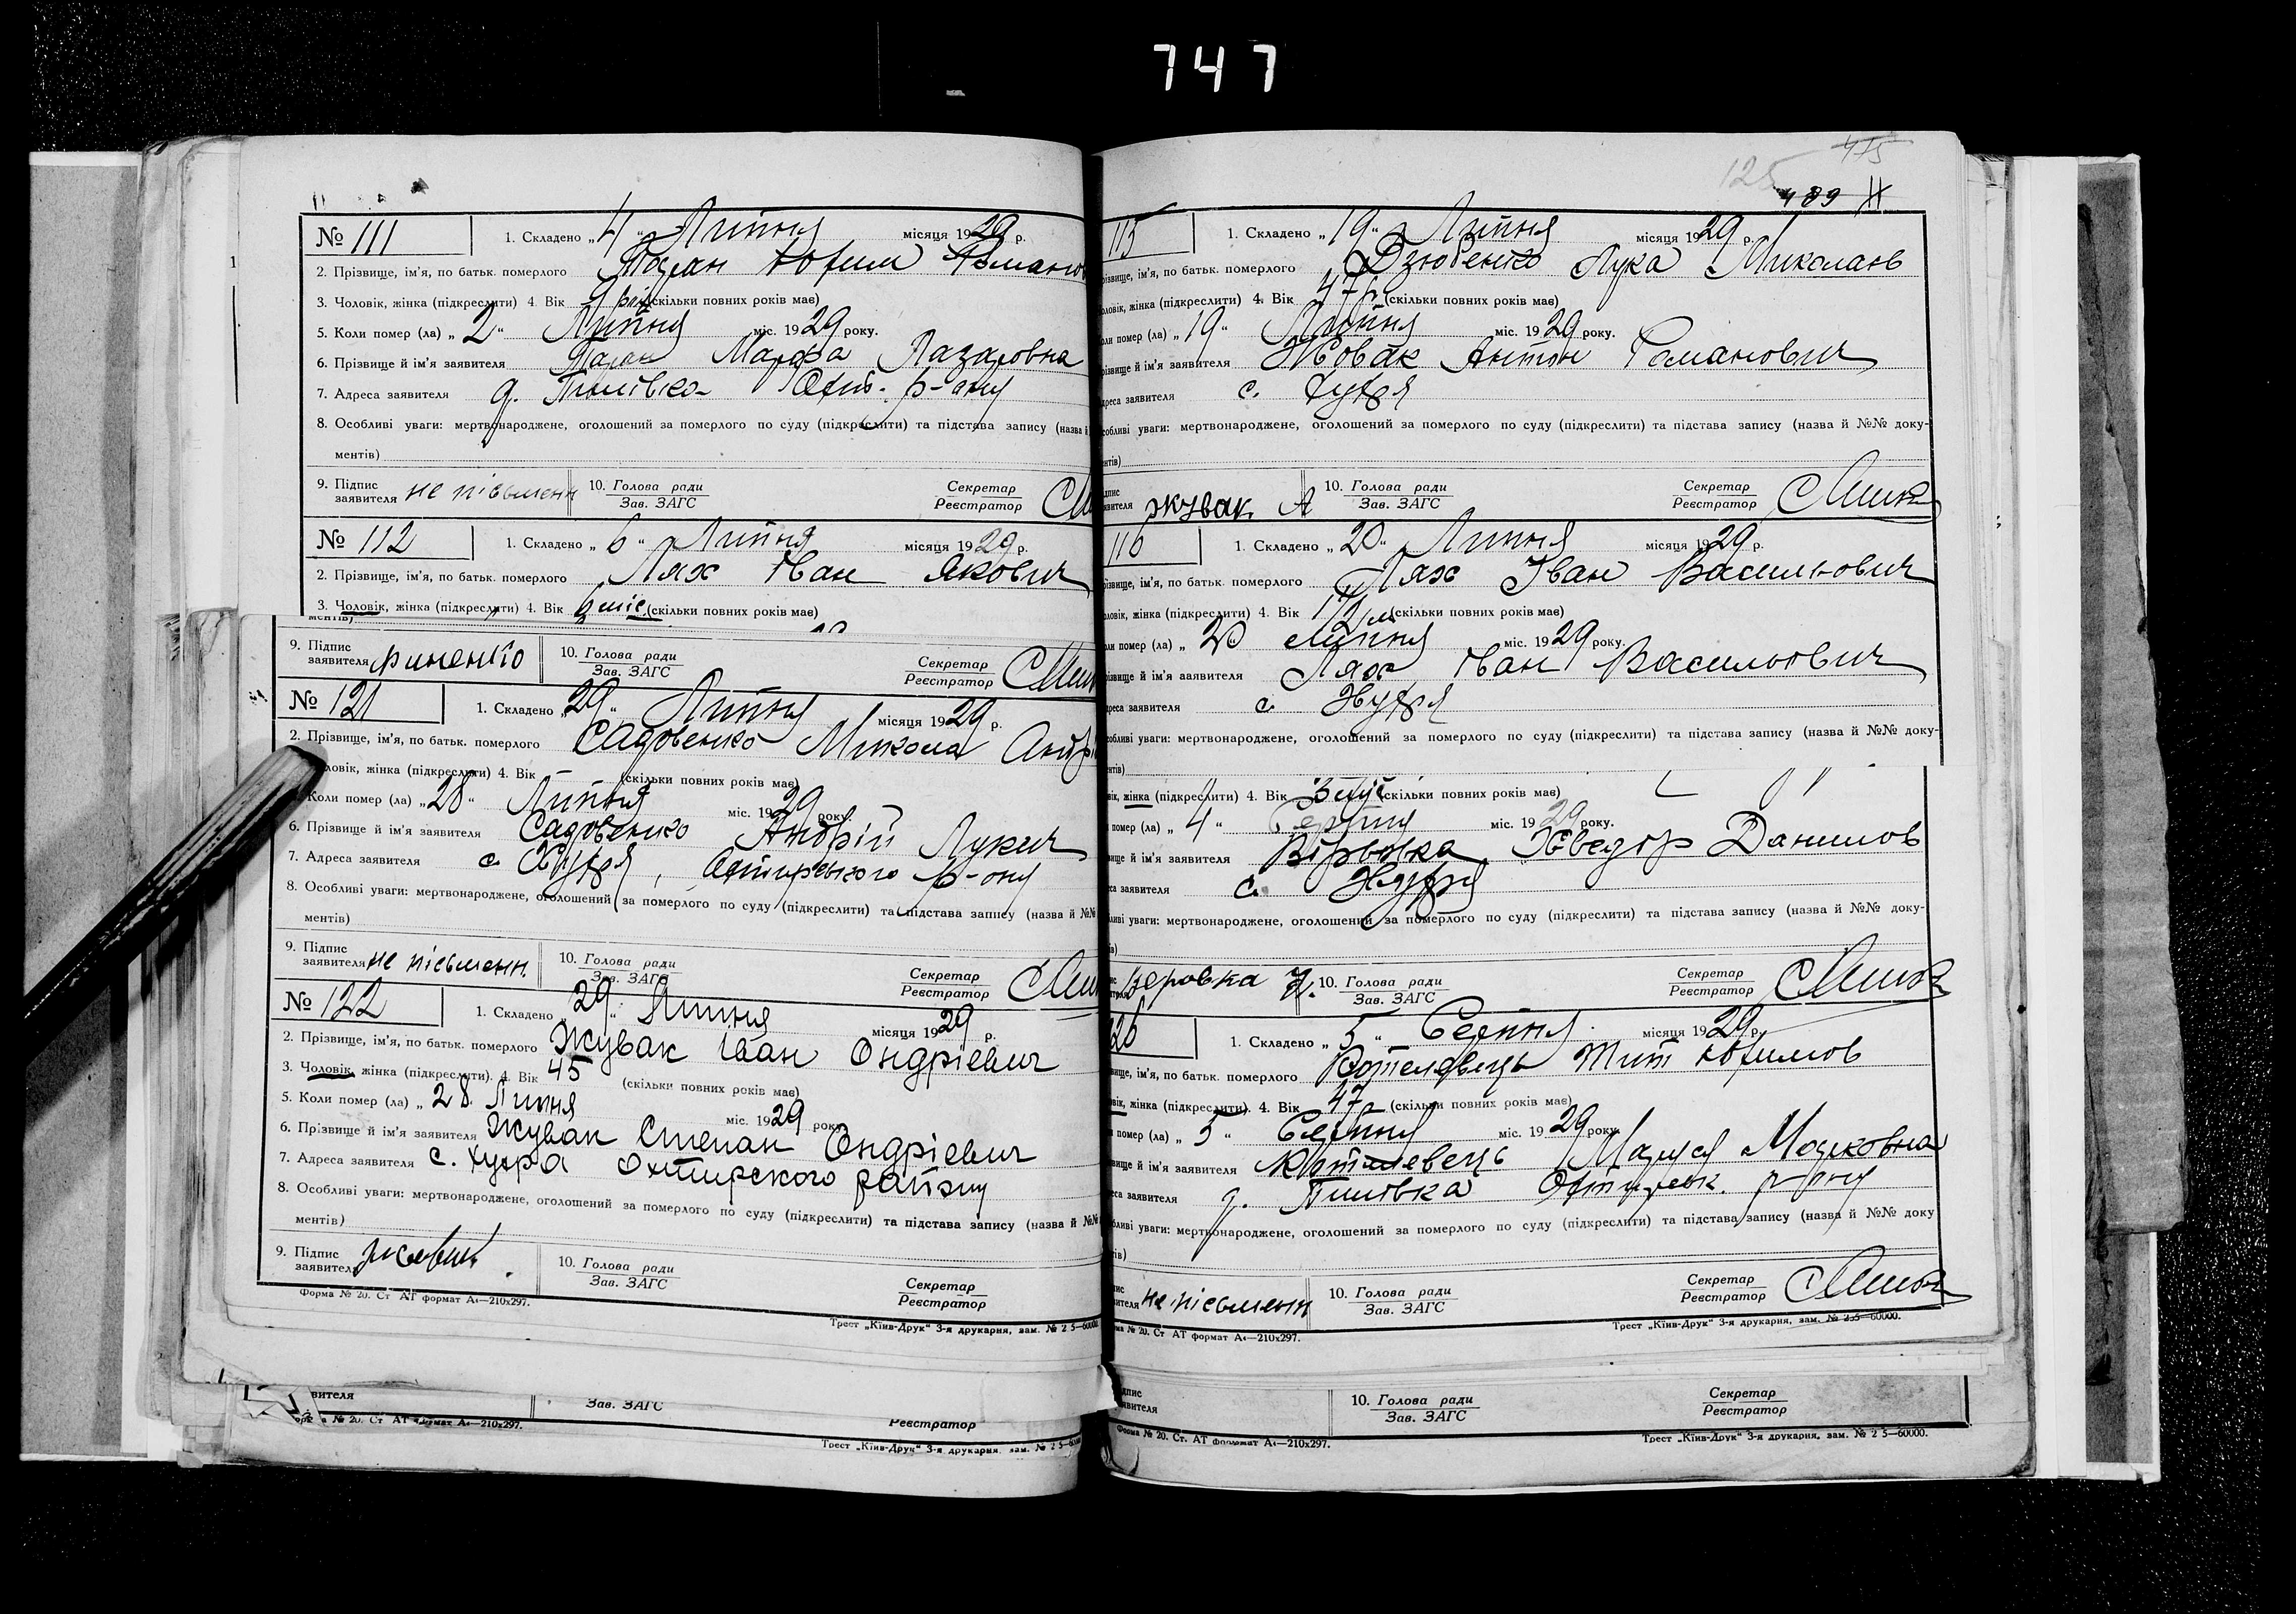 747
№ 111
1. Складено „4“ Липня місяця 1929 р.
2. Прізвище, ім'я, по батьк. померлого Таран Юхим
3. Чоловік, жінка (підкреслити) 4. Вік (скільки повних років має)
5. Коли помер (ла) „2“ Липня міс. 1929 року.
6. Прізвище й ім'я заявителя Таран Марфа Лазаровна
7. Адреса заявителя д. Пилівка Охт. р-ону
8. Особливі уваги: мертвонароджене, оголошений за померлого по суду (підкреслити) та підстава запису (назва й
ментів)
9. Підпис заявителя не пісьменн 10. Голова ради Зав. ЗАГС Секретар Реєстратор
№ 112
1. Складено „6“ Липня місяця 1929 р.
2. Прізвище, ім'я, по батьк. померлого Лях Іван Якович
3. Чоловік, жінка (підкреслити) 4. Вік 6 міс. (скільки повних років має)
ментів)
9. Підпис заявителя 10. Голова ради Зав. ЗАГС Секретар Реєстратор
№ 121
1. Складено „29“ Липня місяця 1929 р.
2. Прізвище, ім'я, по батьк. померлого Садовенко Микола Андрі
ловік, жінка (підкреслити) 4. Вік (скільки повних років має)
Коли помер (ла) „28“ Липня міс. 1929 року.
6. Прізвище й ім'я заявителя Садовенко Андрій Лукич
7. Адреса заявителя с. Хухря, Охтирського р-ону
8. Особливі уваги: мертвонароджене, оголошений за померлого по суду (підкреслити) та підстава запису (назва й №№
ментів)
9. Підпис заявителя не пісьменн. 10. Голова ради Зав. ЗАГС Секретар Реєстратор
№ 122
1. Складено „29“ Липня місяця 1929 р.
2. Прізвище, ім'я, по батьк. померлого Жувак Іван Ондрієвич
3. Чоловік, жінка (підкреслити). 4. Вік 45 (скільки повних років має)
5. Коли помер (ла) „28 Липня міс. 1929 року
6. Прізвище й ім'я заявителя Жувак Степан Ондрієвич
7. Адреса заявителя с. Хухра Охтирского району
8. Особливі уваги: мертвонароджене, оголошений за померлого по суду (підкреслити) та підстава запису (назва й №№
ментів)
9. Підпис заявителя 10. Голова ради Зав. ЗАГС Секретар Реєстратор
Форма № 20. Ст АТ формат А4—210x297.
Трест „Київ-Друк“ 3-я друкарня, зам. № 2 5—60000.
вителя Зав. ЗАГС Реєстратор
№ 20. Ст АТ формат А4—210x297.
Трест „Київ-Друк“ 3-я друкарня, зам. № 2 5—
125 415
489
115
1. Складено „19“ Липня місяця 1929 р.
різвище, ім'я, по батьк. померлого Дзюбенко Лука Миколаїв
оловік, жінка (підкреслити) 4. Вік 47 (скільки повних років має)
оли помер (ла) „19“ Липня міс. 1929 року.
різвище й ім'я заявителя Жовак Антон Романович
дреса заявителя с. Хухря
собливі уваги: мертвонароджене, оголошений за померлого по суду (підкреслити) та підстава запису (назва й №№ доку-
нтів)
дпис явителя жувак А 10. Голова ради Зав. ЗАГС Секретар Реєстратор
116
1. Складено „20“ Липня місяця 1929 р.
різвище, ім'я, по батьк. померлого Лях Іван Васильович
ловік, жінка (підкреслити) 4. Вік (скільки повних років має)
оли помер (ла) „20 Липня міс. 1929 року.
різвище й ім'я заявителя Лях Іван Васильович
реса заявителя с. Хухря
собливі уваги: мертвонароджене, оголошений за померлого по суду (підкреслити) та підстава запису (назва й №№ доку-
нтів)
вік, жінка (підкреслити) 4. Вік 3 міс (скільки повних років має)
помер (ла) „4“ Серпня міс. 1929 року.
вище й ім'я заявителя Вірьовка Хведор Данилов
са заявителя с. Хухря
ливі уваги: мертвонароджене, оголошений за померлого по суду (підкреслити) та підстава запису (назва й №№ доку-
ів)
веровка 10. Голова ради Зав. ЗАГС Секретар Реєстратор
126
1. Складено „5“ Серпня місяця 1929 р.
вище, ім'я, по батьк. померлого Котелевець Тит Юхимов
вік, жінка (підкреслити). 4. Вік 47 (скільки повних років має)
помер (ла) „5“ Серпня міс. 1929 року.
вище й ім'я заявителя Котелевець Марія
са заявителя д. Пилівка Охтирськ. р-ону
бливі уваги: мертвонароджене, оголошений за померлого по суду (підкреслити) та підстава запису (назва й №№ доку
тів)
пис вителя не пісьменн 10. Голова ради Зав. ЗАГС Секретар Реєстратор
ма № 20. Ст АТ формат А4—210x297.
Трест „Київ-Друк“ 3-я друкарня, зам. № 235—60000.
дпис явителя 10. Голова ради Зав. ЗАГС Секретар Реєстратор
Форма № 20. Ст. АТ формат А4—210x297.
Трест „Київ-Друк“ 3-я друкарня, зам. № 2 5—60000.